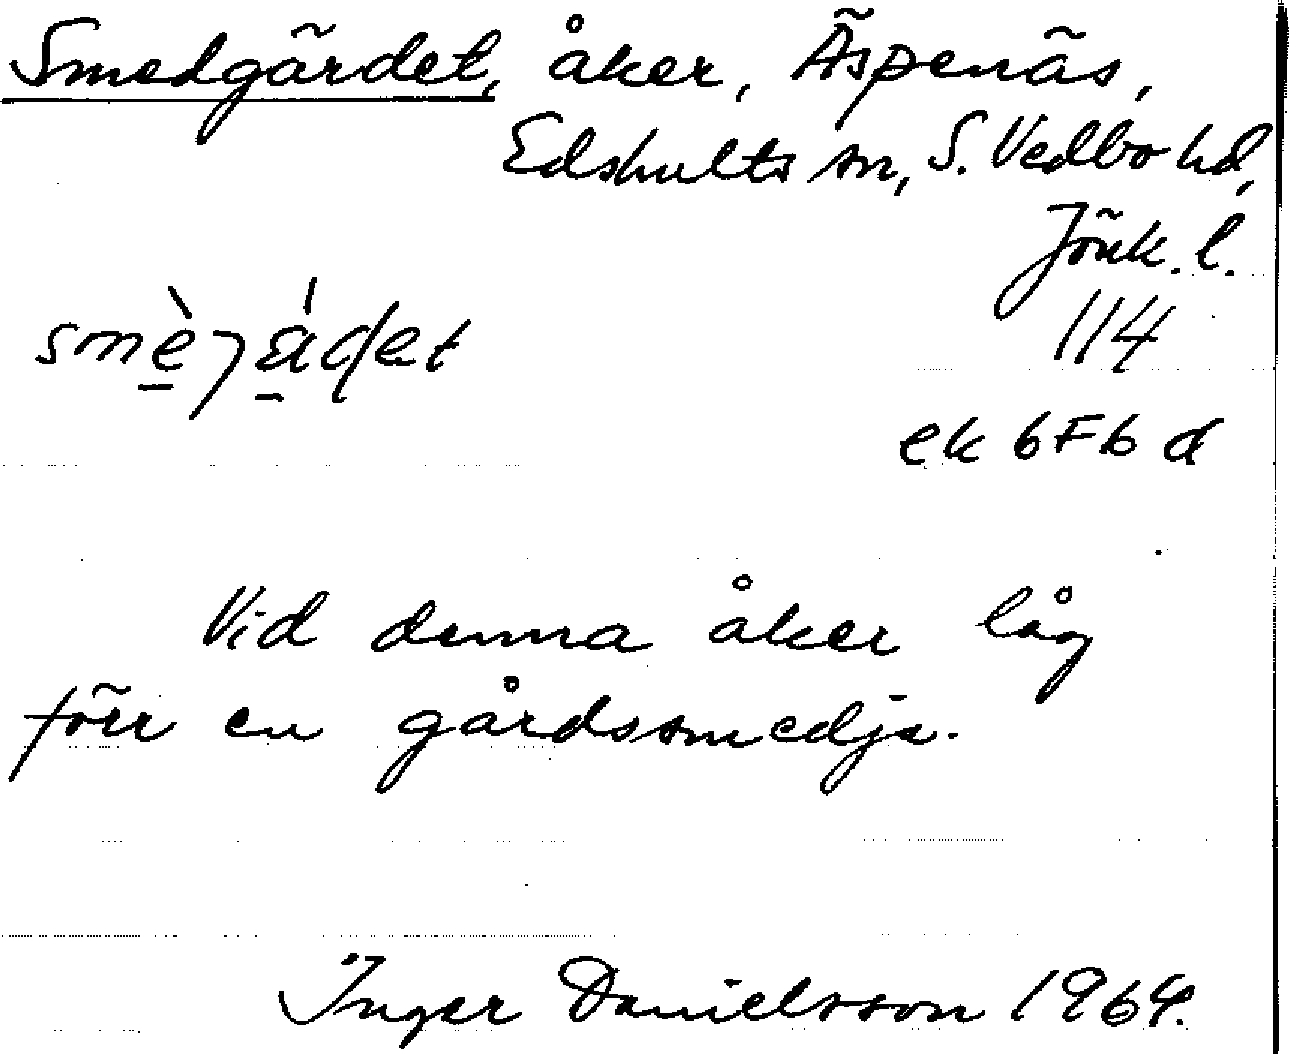 Smedgärdet, åker, Äspenäs,
Edshults sn, S. Vedbo hd,
Jönk. l.
114
ek 6F6 d
Vid denna åker låg
förr en gårdssmedja.
Inger Danielsson 1964.